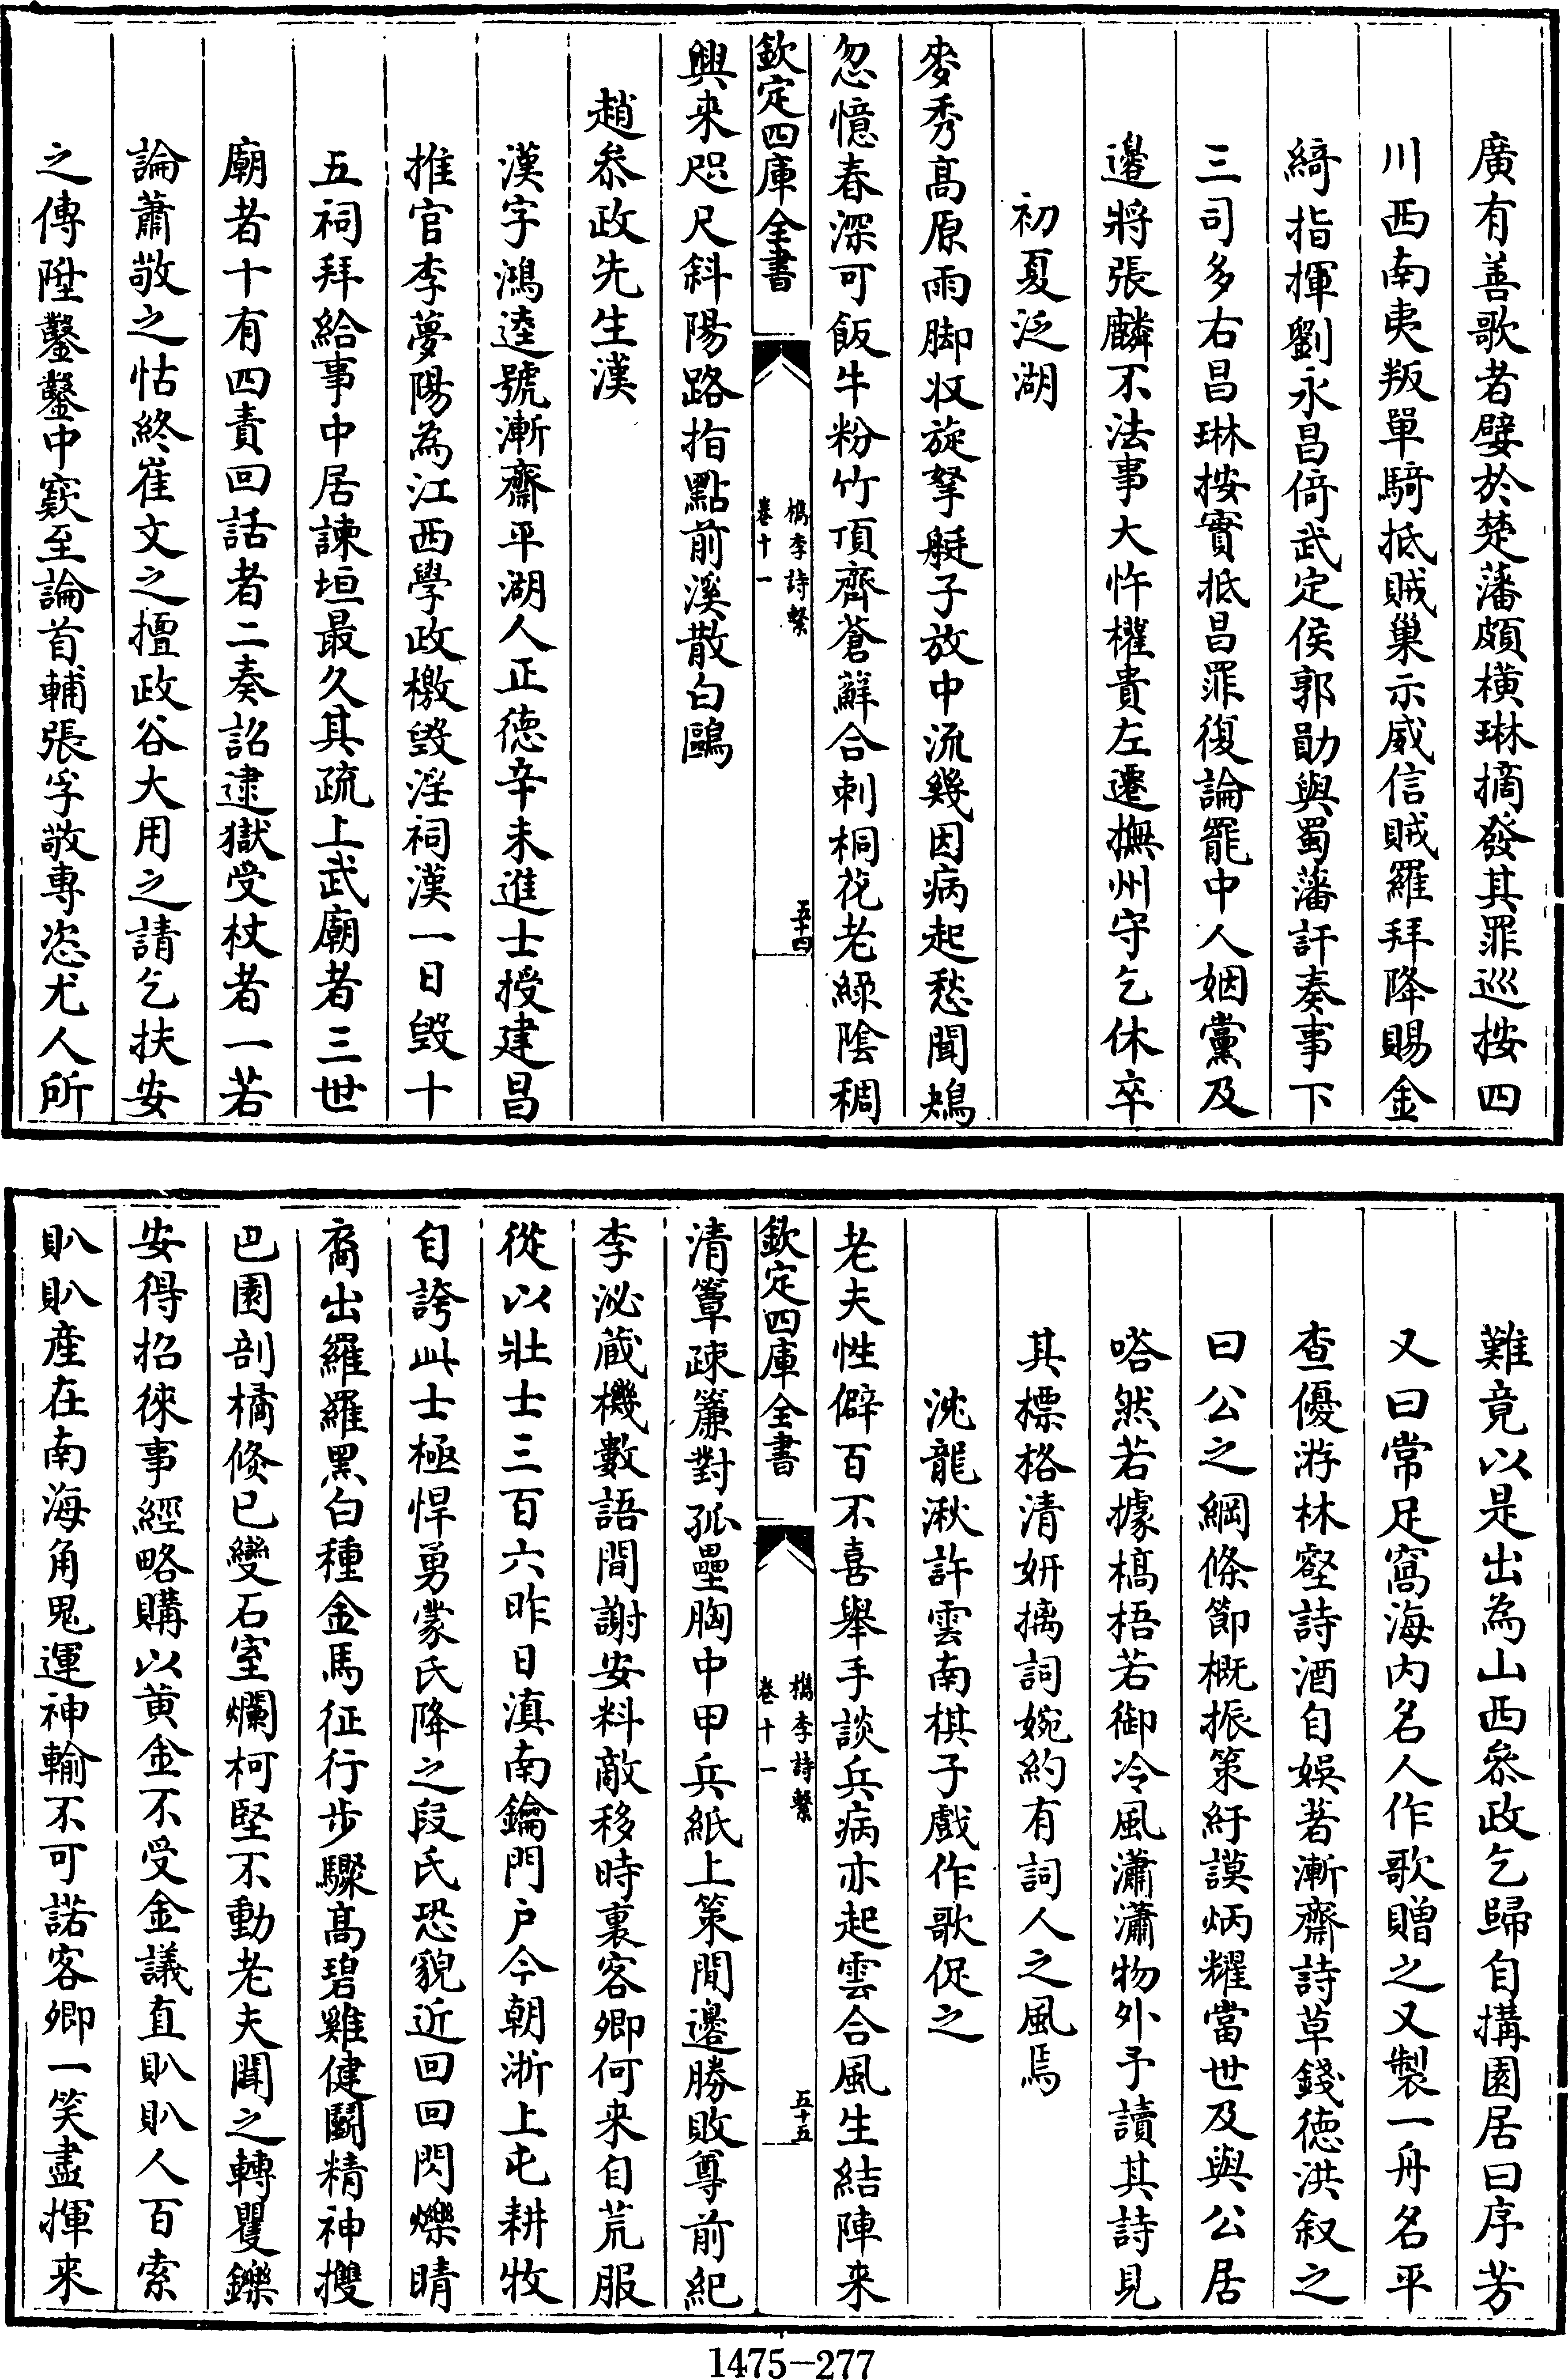 廣有善歌者嬖於楚藩頗横琳摘發其罪巡按四
川西南夷叛單騎抵賊巢示威信賊羅拜降賜金
綺指揮劉永昌倚武定侯郭勛與蜀藩訐奏事下
三司多右昌琳按實抵昌罪復論罷中人姻黨及
邊將張麟不法事大忤權貴左遷撫州守乞休卒
初夏泛湖
麥秀髙原雨脚收旋拏艇子放中流幾因病起愁聞鴂
忽憶春深可飯牛粉竹頂齊蒼蘚合刺桐花老綠陰稠
欽定四庫全書
檇李詩繫
卷十一
五十四
興来咫尺斜陽路指點前溪散白鷗
趙叅政先生漢
漢字鴻逵號漸齋平湖人正德辛未進士授建昌
推官李夢陽為江西學政檄毁淫祠漢一日毁十
五祠拜給事中居諫垣最久其疏上武廟者三世
廟者十有四責回話者二奏詔逮獄受杖者一若
論蕭敬之怙終崔文之擅政谷大用之請乞扶安
之傳陞鑿鑿中窽至論首輔張孚敬專恣尤人所
難竟以是出為山西叅政乞歸自搆園居曰序芳
又曰常足窩海内名人作歌贈之又製一舟名平
查優游林壑詩酒自娱著漸齋詩草錢德洪叙之
曰公之綱條節概振策紆謨炳耀當世及與公居
嗒然若據槁梧若御冷風瀟瀟物外予讀其詩見
其標格清妍摛詞婉約有詞人之風焉
沈龍湫許雲南棋子戲作歌促之
老夫性僻百不喜舉手談兵病亦起雲合風生結陣来
欽定四庫全書
檇李詩繫
卷十一
五十五
清簟疎簾對孤壘胸中甲兵紙上策閒邊勝敗尊前紀
李泌蔵機數語間謝安料敵移時裏客卿何来自荒服
從以壯士三百六昨日滇南鑰門户今朝淛上屯耕牧
自誇此士極悍勇蒙氏降之段氏恐貌近回回閃爍睛
裔出羅羅黑白種金馬征行步驟髙碧雞健鬬精神㩳
巴園剖橘倐已變石室爛柯堅不動老夫聞之轉矍鑠
安得招徠事經略購以黄金不受金議直㕤㕤人百索
㕤㕤産在南海角鬼運神輸不可諾客卿一笑盡揮来
1475-277